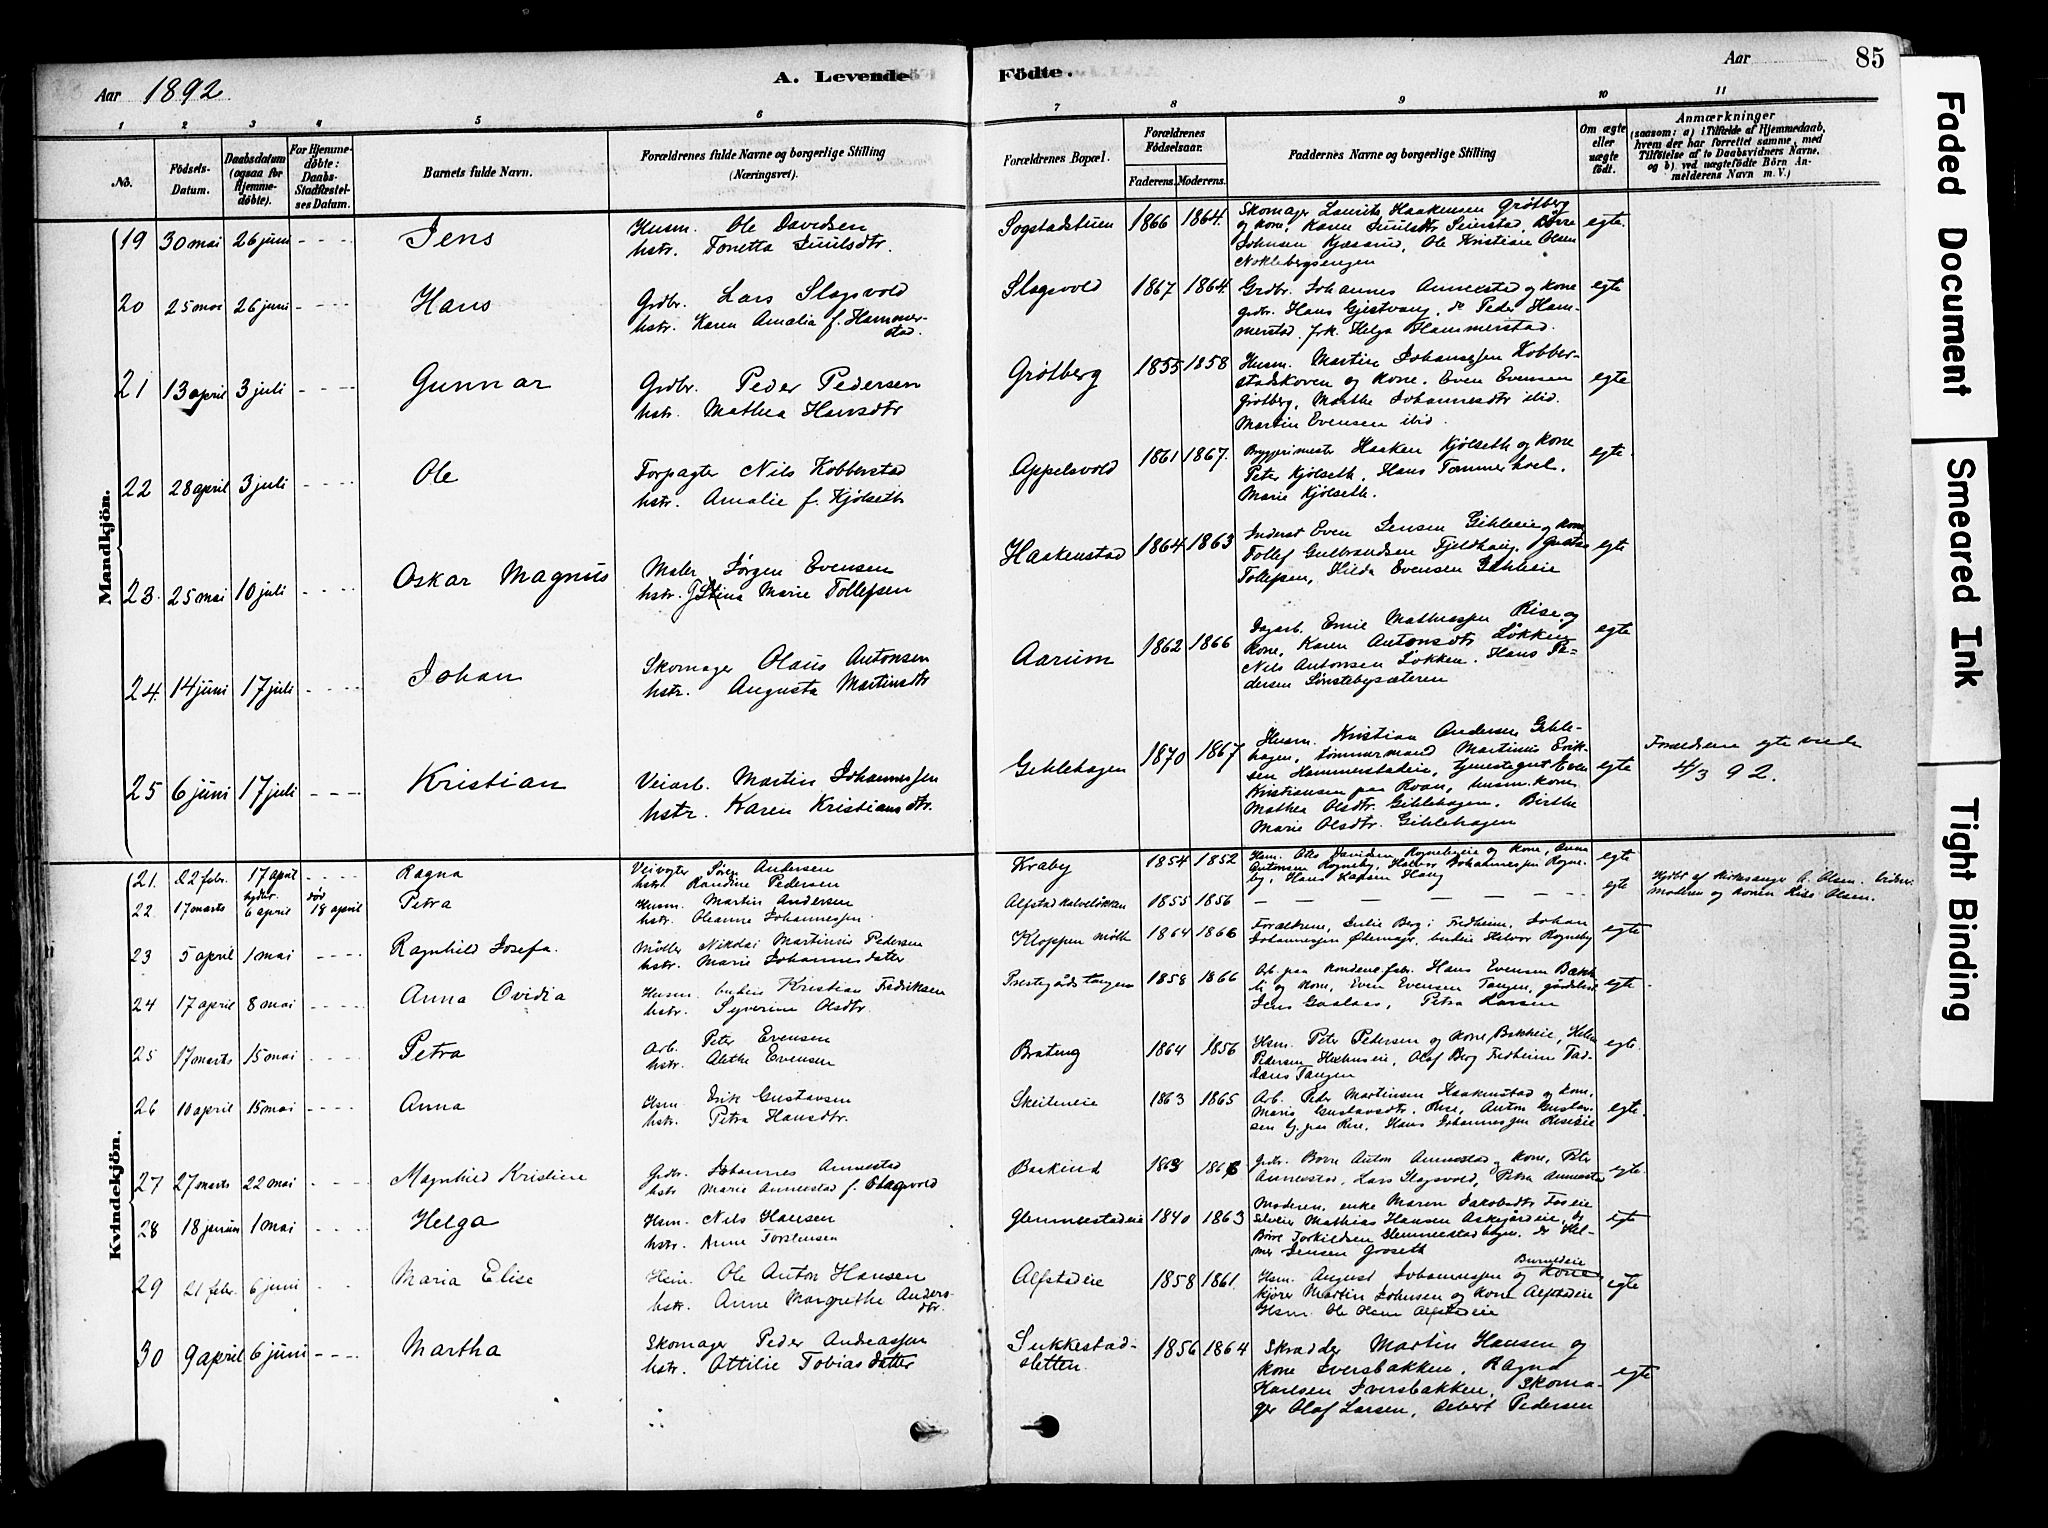 Aar 1892
A. Levende Födte.
Aar 85
1 2 3 4 5 6 7 8 9 10 11
No.
Födsels-Datum.
Daabsdatum (ogsaa for Hjemme-döbte).
For Hjemme-döbte: Daabs-Stadfæstel-ses Datum.
Barnets fulde Navn.
Forældrenes fulde Navne og borgerlige Stilling (Næringsvei).
Forældrenes Bopæl.
Forældrenes Födselsaar.
Faderens. Moderens.
Faddernes Navne og borgerlige Stilling
Om ægte eller uægte födt.
Anmærkninger
(saasom: a) i Tilfælde af Hjemmedaab, hvem der har forrettet samme, med Tilföielse af to Daabsvidners Navne, og b) ved uægtefödte Börn An-melderens Navn m. V.)
Mandkjön.
19 30 mai 26 juni - - - - Jens
Husm. Ole Davidsen
hstr. Tonetta Juulsdtr.
Sogstadstuen 1866 1864.
Skomager Laurits Haakensen Grötberg
og kone, Karen Juulsdtr
Johnsen Ole Kristian Olsen
Noklebergsengen
egte.
20 25 mai 26 juni - - - - Hans
Grdbr. Lars Slagsvold
hstr. Karen Amalia f. Hammer-
stad.
Slagsvold 1867 1864.
Grdbr. Johannes Annæstad og kone
grdbr. Hans Gjestvang, do Peder Ham-
merstad, frk. Helga Hammerstad.
egte
21 13 april 3 juli - - - - Gunnar
Grdbr. Peder Pedersen
hstr. Mathea Hansdtr
Grötberg 1855 1858
Husm. Martin Johannessen Kobber-
stadskoven og kone. Even Evensen
Grötberg, Marthe Johannesdtr ibid.
Martin Evensen ibid.
egte
22 28 april 3 juli - - - - Ole
Forpagter Nils Kobberstad
hstr. Amalie f. Kjölseth
Appelsvold 1861 1867.
Bryggerimester Haaken Kjölseth og kone
Peter Kjölseth, Hans Tommerhoel.
Marie Kjölseth.
egte.
23. 25 mai 10 juli - - - - Oskar Magnus
Maler Jörgen Evensen
hstr. Stina Marie Tollefsen
Haakenstad 1864 1863
Inderst Even Jensen Gihleeie og kone
Tollef Gulbrandsen Fjeldhaug, Gusta
Tollefsen, Hilda Evensen Gihleeie
egte
24. 14 juni 17 juli - - - - Johan
Skomager Olaus Antonsen
hstr. Augusta Martinsdtr
Aarum 1862 1866
Dagarb. Emil Mathiassen Rise og
kone, Karen Antonsdtr Løkken
Nils Antonsen Løkken. Hans Pe-
dersen Sönstebysæteren
egte
25 6 juni 17 juli - - - - Kristian
Veiarb. Martin Johannessen
hstr. Karen Kristiansdtr.
Gihlehagen 1870 1867
Husm. Kristian Andersen Gihle-
hagen, tömmermand Martinius Erik-
sen Hammerstadeie, tjenestegut Even
Kristiansen paa Roan, husm. kone
Mathea Olsdtr. Gihlehagen. Birthe
Marie Olsdtr. Gihlehagen
egte
Forældrene egteviede
4/3 92.
Kvindekjön.
21. 22 febr. 17 april - - - - Ragna
Veivogter Søren Andersen
hstr. Randine Pedersen
Kraby 1854 1852
Hsm. Davidsen Rognebyeie og kone, Anna
Antonsen Rogneby, Halvor Johannessen Rogne-
by, Hans Larsen Haug
egte
22 17 marts hjdbt. 6 april død 18 april Petra
Husm. Martin Andersen
hstr. Oleanne Johannessen
Alfstadkalveløkken 1855 1856 — — — — — —
egte
Hjdbt af kirkesanger A. Olsen.
moderen og konen Olsen.
23 5 april 1 mai - - - - Ragnhild Josefa.
Møller Nikolai Martinius Pedersen
hstr. Marie Johannesdatter
Kloppen mölle 1864 1866
Forældrene, Julie Berg, Fredheim, Johan
Johannessen Østenager, Halvor Rogneby
egte
24 17 april 8 mai - - - - Anna Ovidia
Husm. Kristian Fredriksen
hstr. Syverine Olsdtr.
Prestegårds tangen 1858 1866
Arb. paa kondens. fabr. Hans Evensen Bakke-
li og kone, Even Evensen Tangen,
Jens Gaalaas, Petra Larsen
egte
25 17 marts 15 mai - - - - Petra
Arb. Peter Evensen
hstr. Alethe Evensen
Brateng 1864 1856
Hsm. Peter Pedersen og kone, Bakkeie,
Pedersen Olaf Berg Fredheim
Tangen
egte.
26 10 april 15 mai - - - - Anna
Hsm. Erik Gustavsen
hstr. Petra Hansdtr.
Skeiteneie 1863 1865
Arb. Peder Martinsen Haakenstad og kone,
Maria Gustavsdtr. Rise, Anton Gustav-
sen Gj. paa Rise, Hans Johannessen Riseeie
egte.
27 27 marts 22 mai - - - - Magnhild Kristine
Grdbr. Johannes Annæstad
hstr Marie Annæstad f. Slagsvold
Baskind 1863 1866
Grdbr. Borre Anton Annæstad og kone, Peter
Annæstad, Lars Slagsvold, Petra Annæstad
egte.
28 18 januar 1 mai - - - - Helga
Hsm. Nils Hansen
hstr. Anne Torstensen
Glemmestadeie 1840 1863
Moderen, enke Maren Jakobsdtr Foseie
Mathias Hansen Askjærdeie, do
Borre Torkildsen Glemmestadhagen, do Hel-
mer Jensen Groseth
egte
29 21 febr. 6 juni - - - - Maria Elise
Hsm. Ole Anton Hansen
hstr. Anne Margrethe Anders-
dtr.
Alfstadeie 1858 1861.
Hsm. August Johannessen og kone
kjörer Martin Johnsen og kone Alfstadeie
Hsm. Ole Olsen Alfstadeie
egte
30 9 april 6 juni - - - - Martha
Skomager Peder Andreassen
hstr. Attilie Tobiasdatter
Sukkestad-
sletten 1856 1864
Skrædder Martin Hansen og
kone Iversbakken. Ragna
Karlsen Iversbakken. Skoma-
ger Olaf Larsen, Albert Pedersen
egte
Faded Document
Smeared Ink
Tight Binding